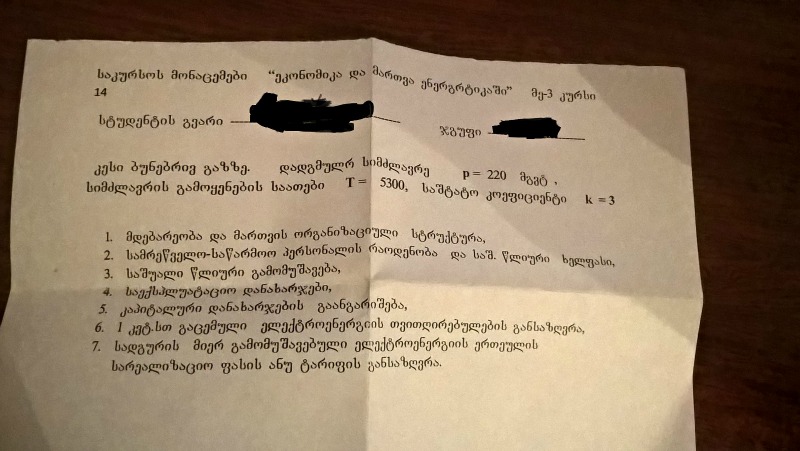 საკურსოს მონაცემები “ეკონომიკა და მართვა ენერგრტიკაში” მე-3 კურსი
14
სტუდენტის გვარი
ჯგუფი
კესი ბუნებრივ გაზზე. დადგმულრ სიმძლავრე p = 220 მგვტ ,
სიმძლავრის გამოყენების საათები T = 5300, საშტატო კოეფიციენტი k = 3
1. მდებარეობა და მართვის ორგანიზაციული სტრუქტურა,
2. სამრეწველო-საწარმოო პერსონალის რაოდენობა და საშ. წლიური ხელფასი,
3. საშუალო წლიური გამომუშავება,
4. საექსპლუატაციო დანახარჯები,
5. კაპიტალური დანახარჯების გაანგარიშება,
6. 1 კვტ.სთ გაცემული ელექტროენერგიის თვითღირებულების განსაზღვრა,
7. სადგურის მიერ გამომუშავებული ელექტროენერგიის ერთეულის
სარეალიზაციო ფასის ანუ ტარიფის განსაზღვრა.